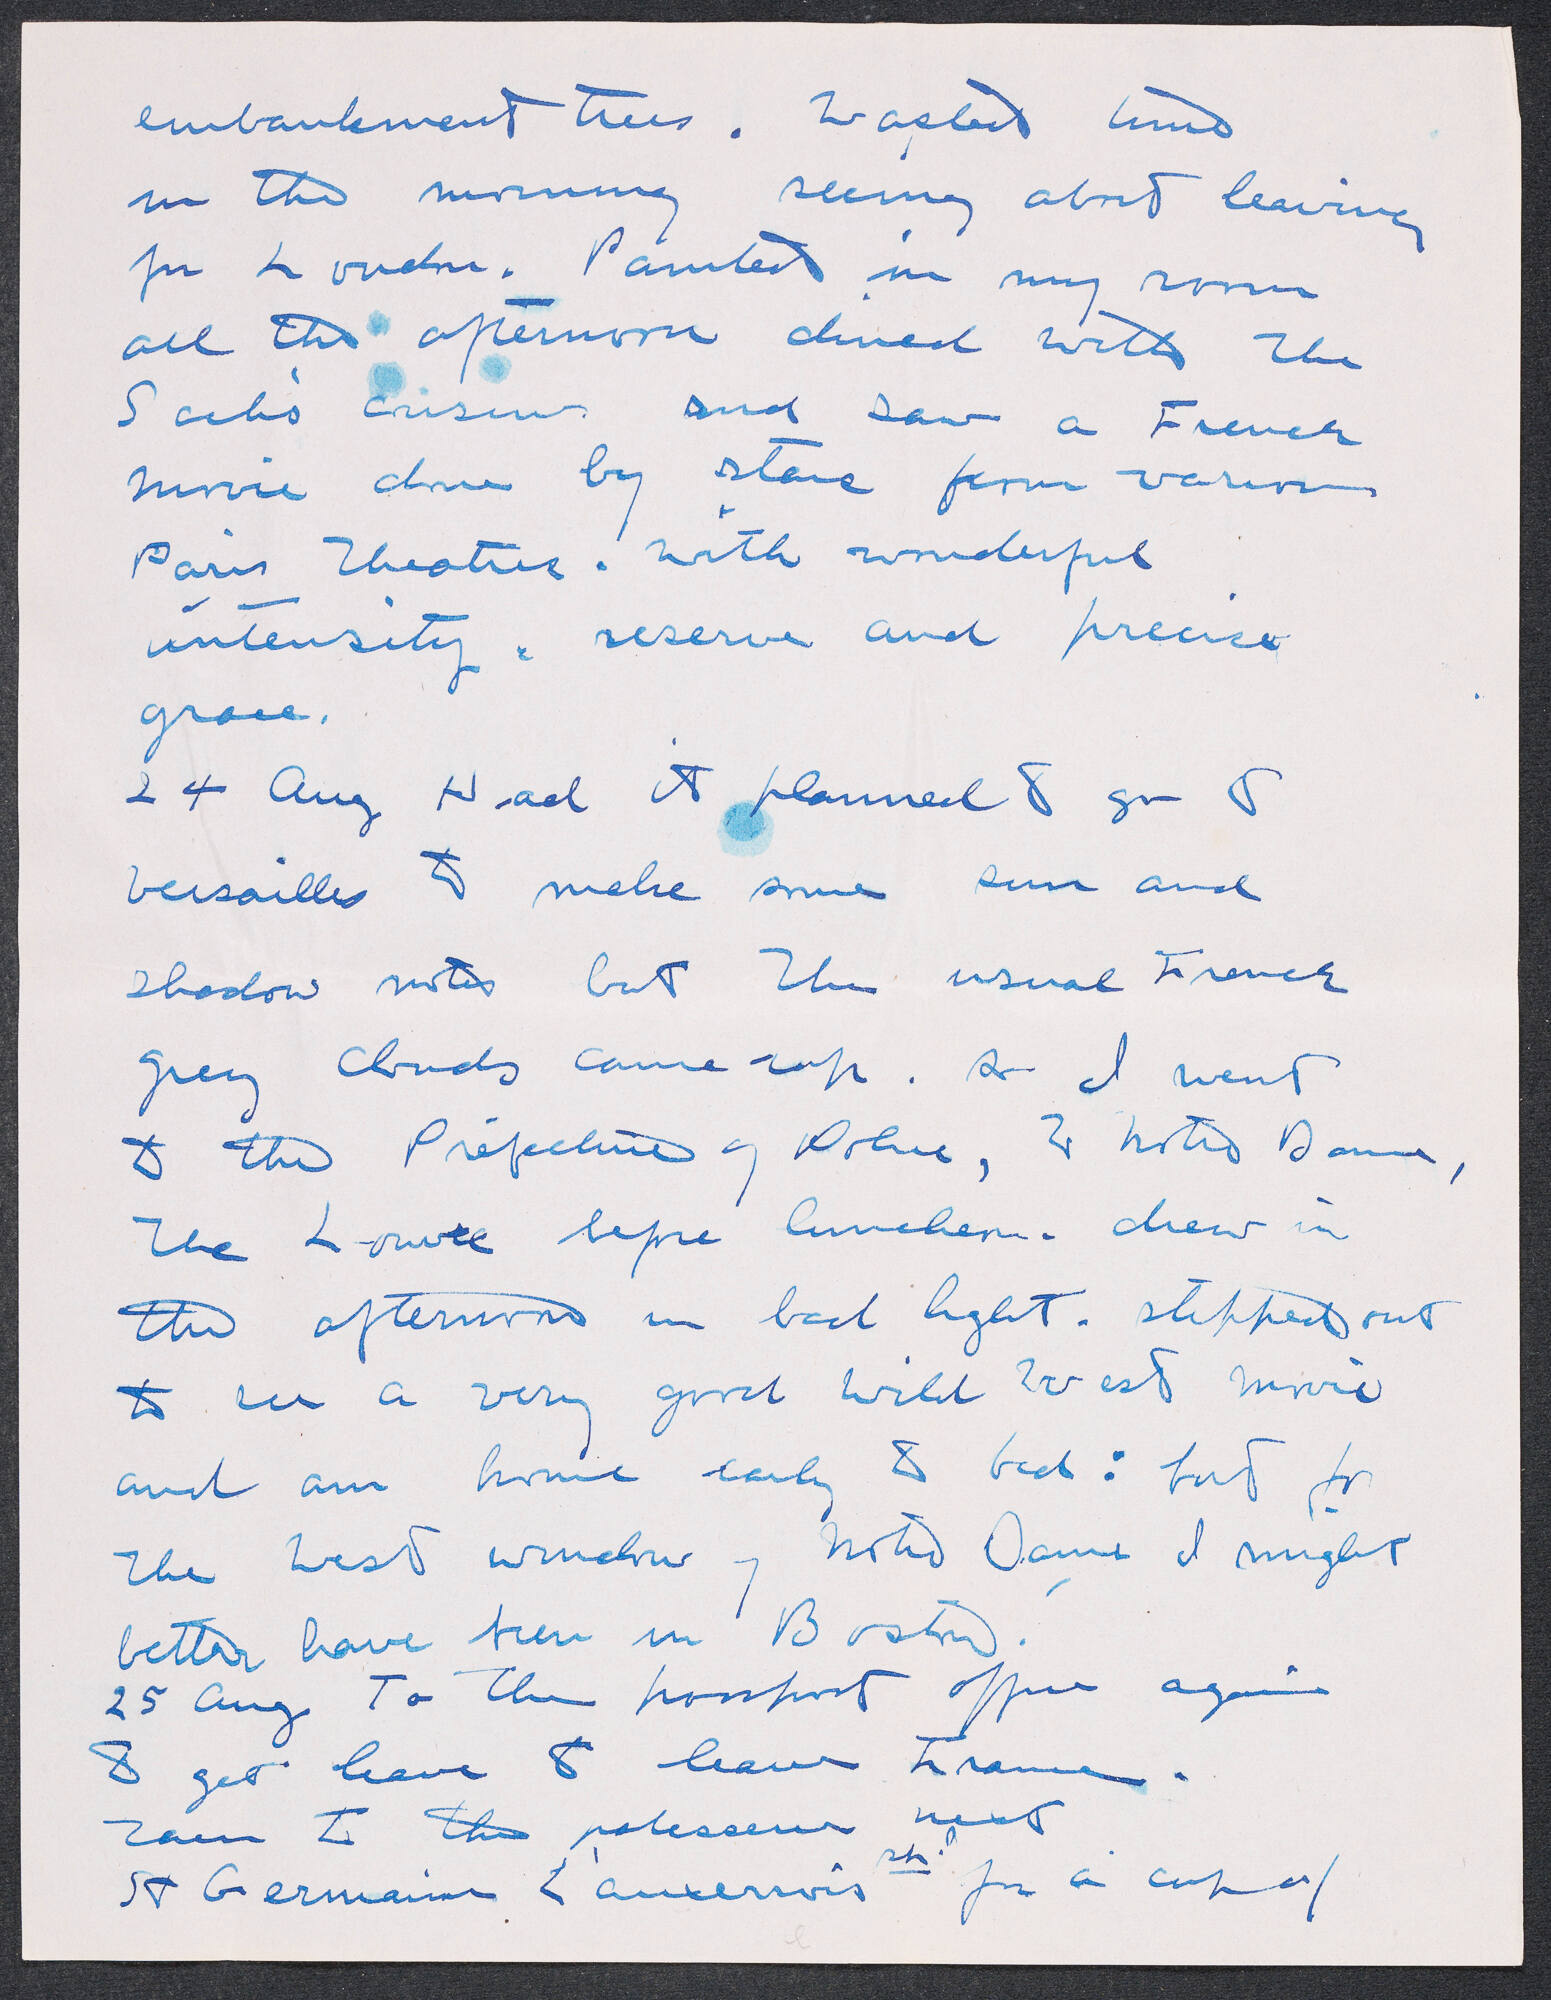 embankment trees. Wasted time
in the morning seeing about leaving
for London. Painted in my room
all the afternoon dined with the
Sachs' cousins and saw a French
movie done by stars from various
Paris Theatres. with wonderful
intensity, reserve and precise
grace.
24 Aug Had it planned to go to
Versailles to make some sun and
shadow notes but the usual French
grey clouds came up. so I went
to the Préfecture of Police, to Notre Dame,
The Louvre before luncheon. drew in
the afternoon in bad light. stepped out
to see a very good wild West movie
and am home early to bed: but for
the West window of Notre Dame I might
better have been in Boston.
25 Aug To the passport office again
to get leave to leave France.
Then to the patisserie next
St Germaine L'auxerrois for a cup of